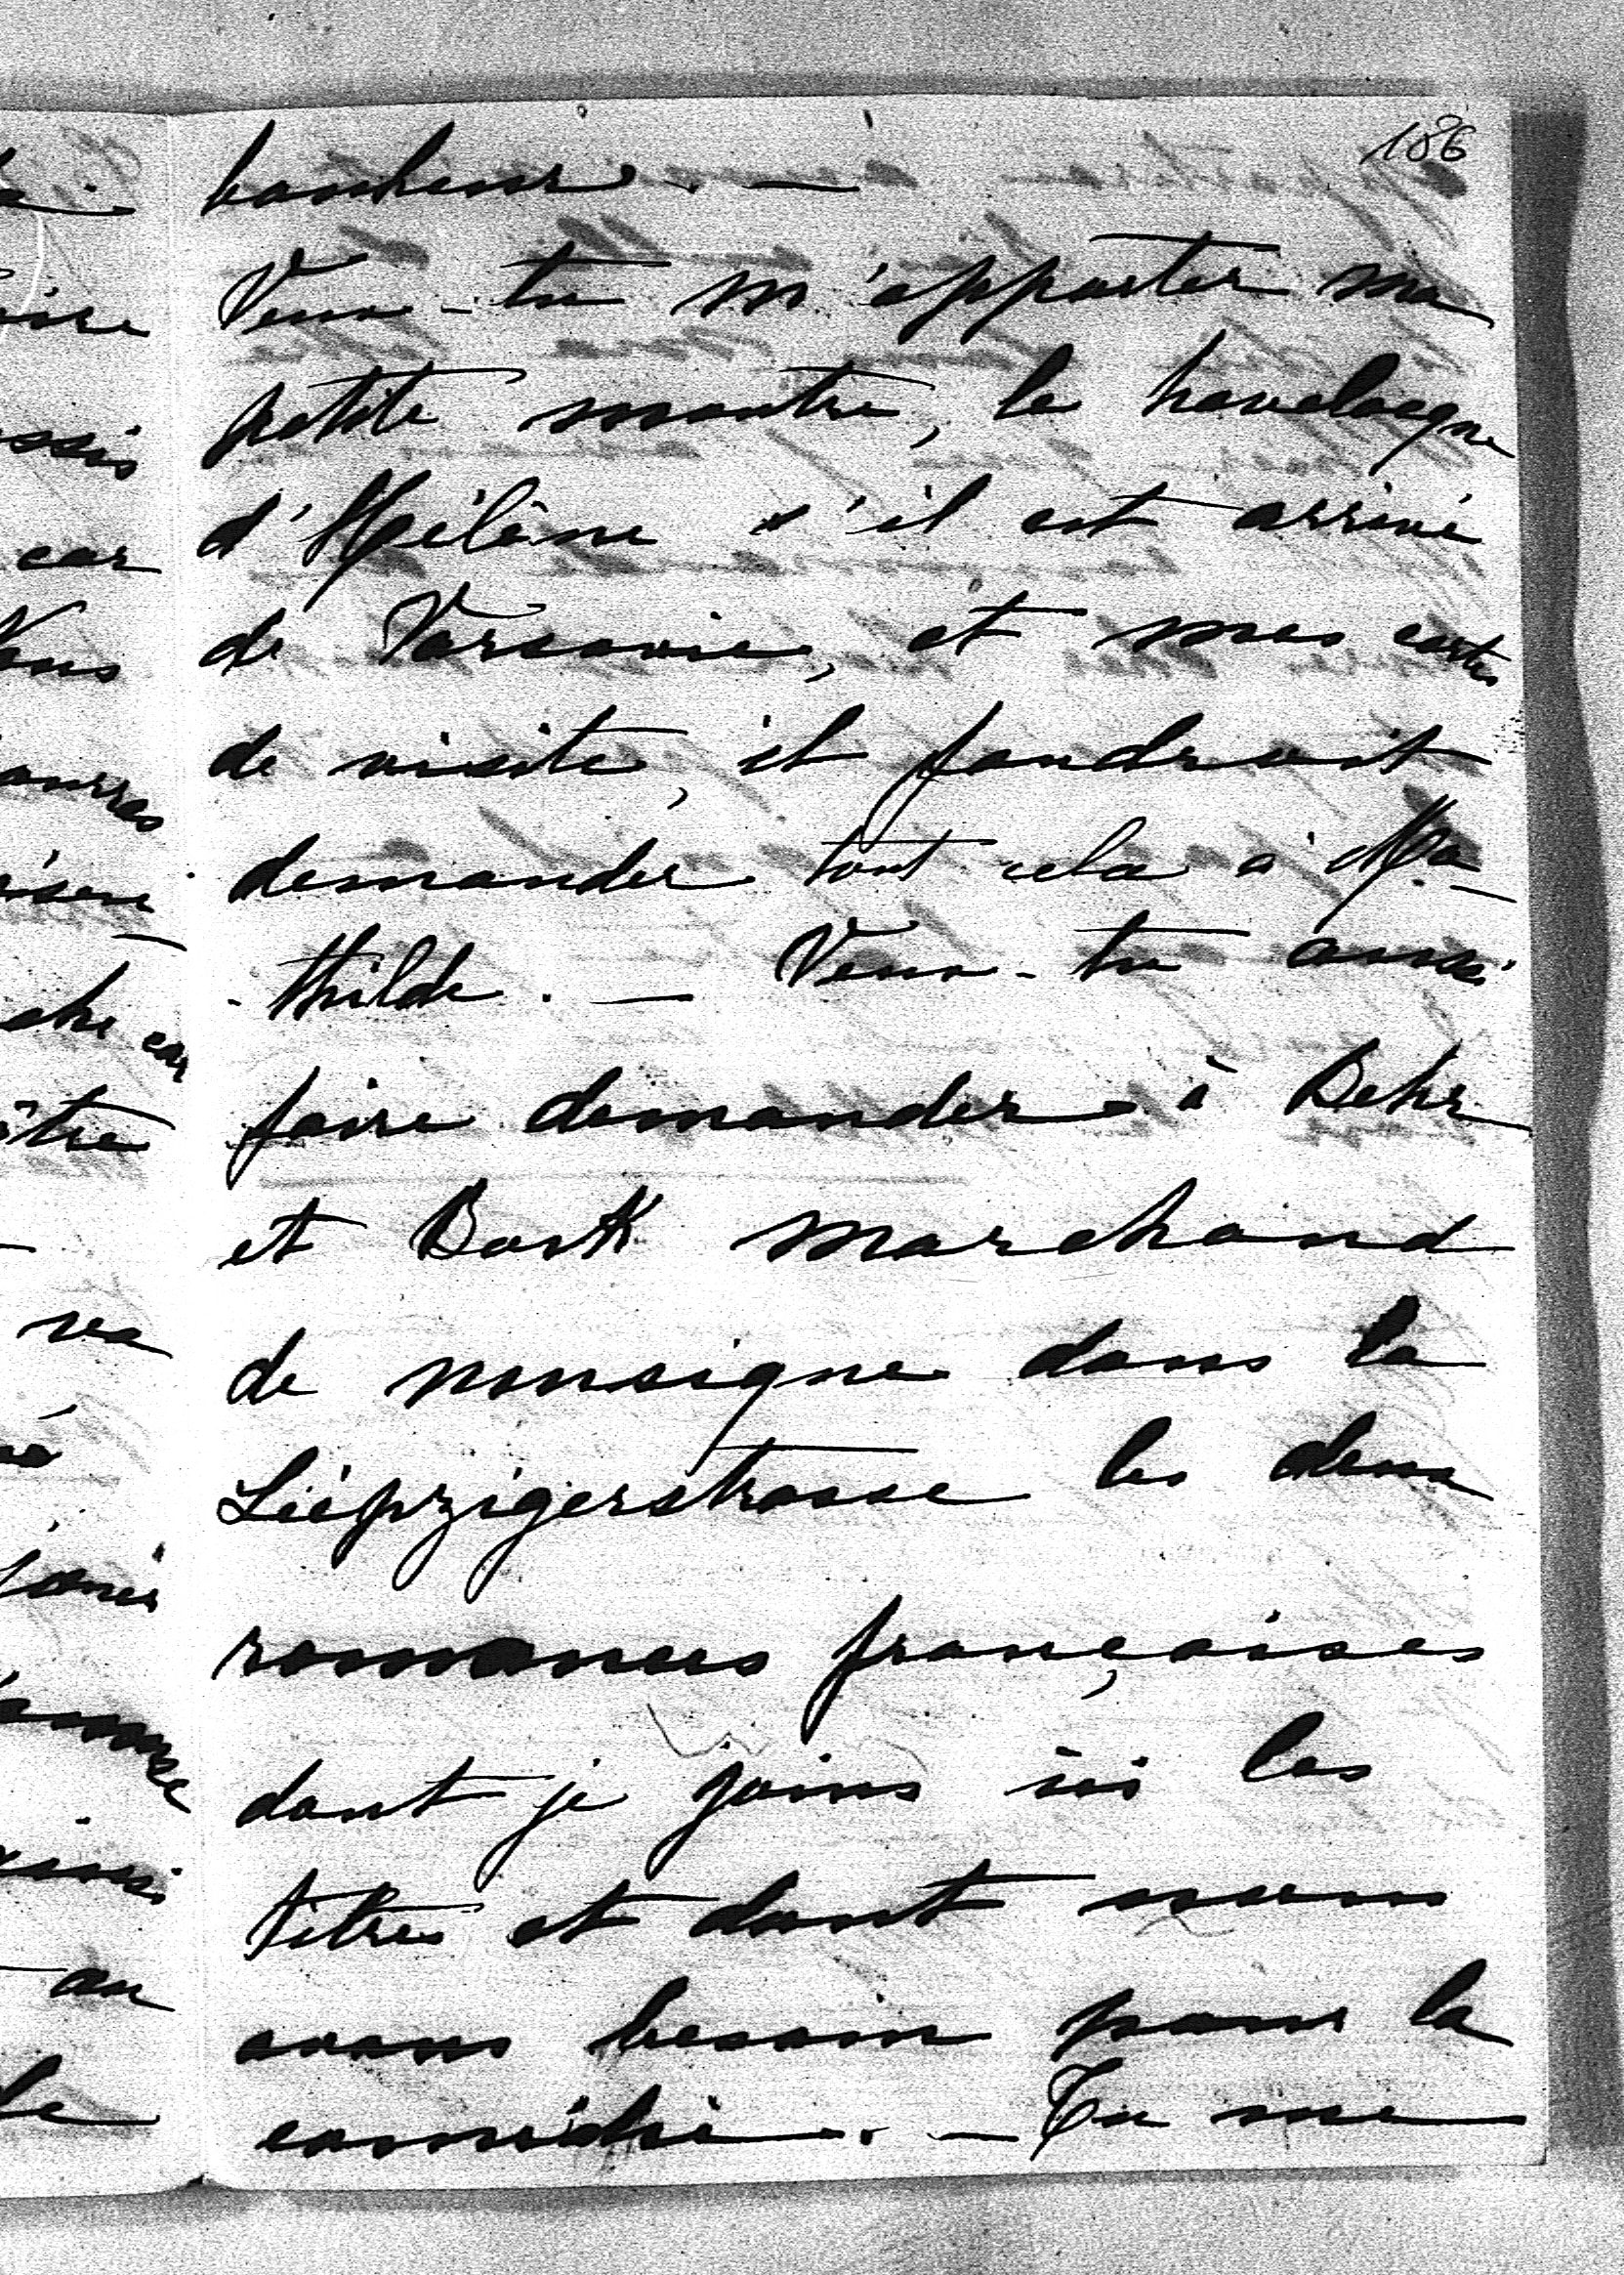 186
bonheur. —
Veux-tu m'apporter ma
petite montre, le havelocque
d'Hélène s'il est arrivé
de Varsovie, et mes cartes
de visite, il faudrait
demander tout cela à Ma-
-thilde. — Veux-tu aussi
faire demander à Behr
et Bock marchand
de mousique dans la
Liépzigerstrasse les deux
romances françaises
dont je joins ici les
titres et dont nous
avons besoin pour la
comédie. — Tu me
car
va
au